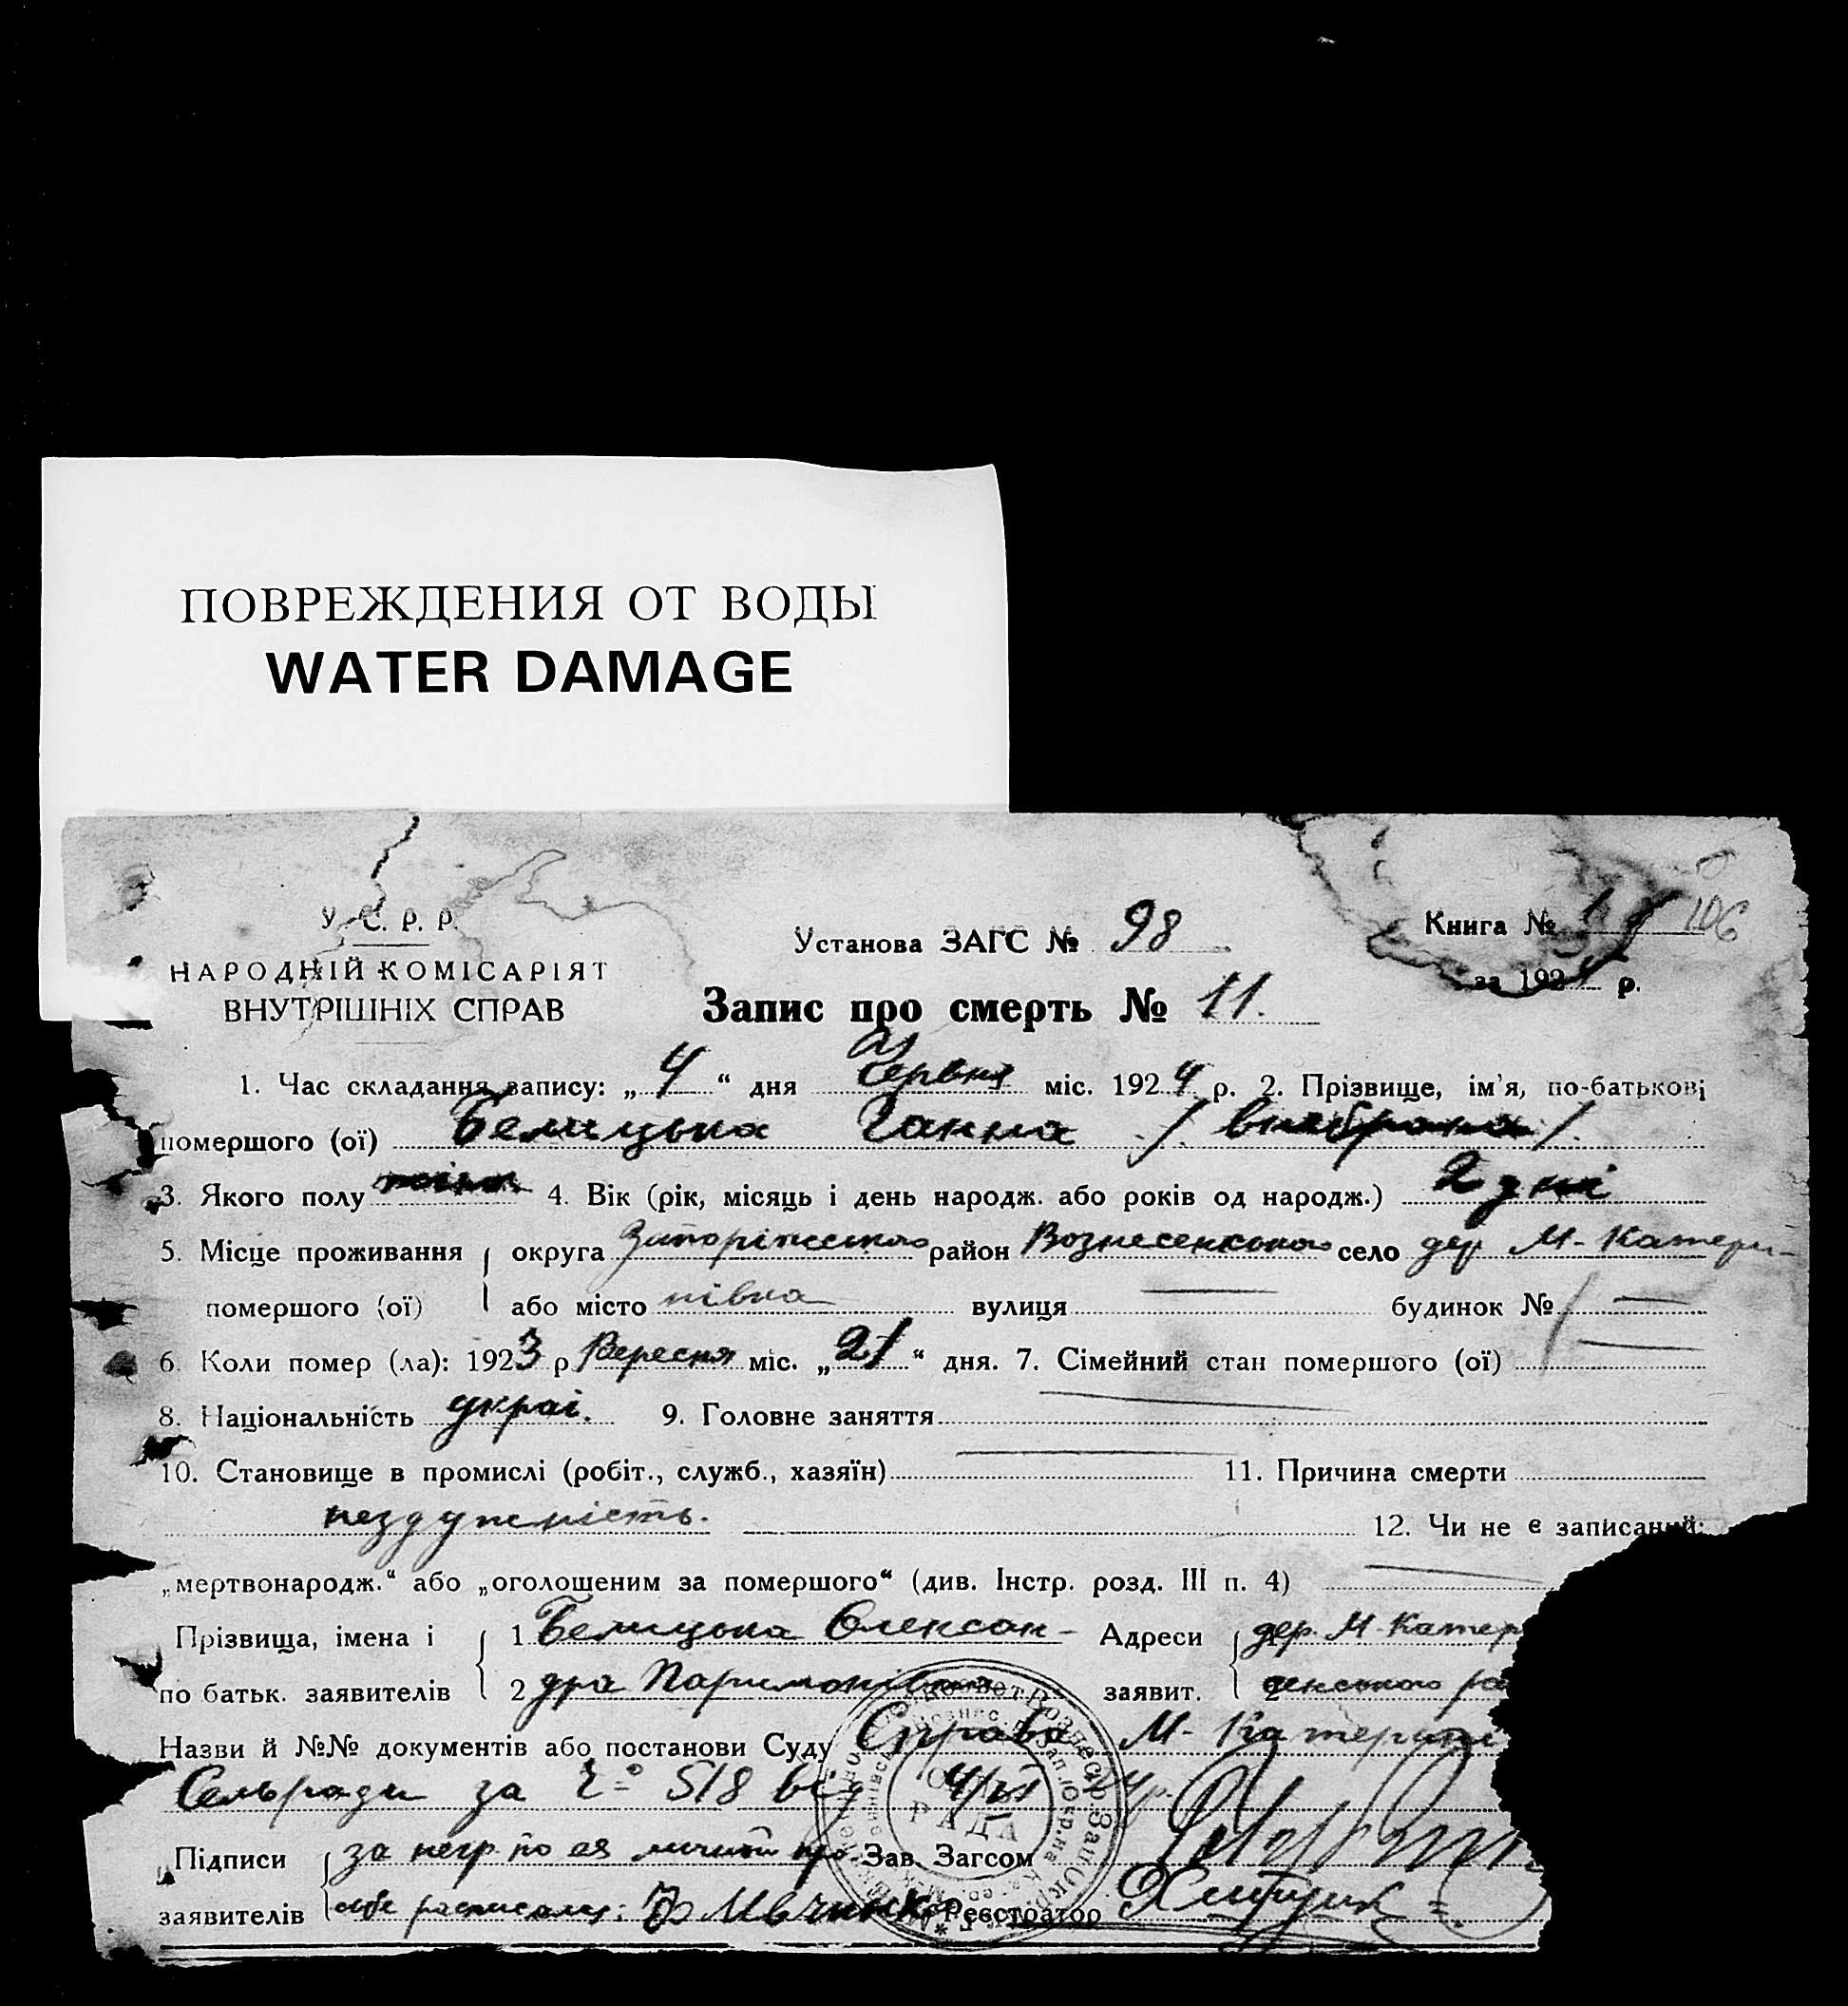 ПОВРЕЖДЕНИЯ ОТ ВОДЫ
WATER DAMAGE
У. С. Р. Р.
НАРОДНІЙ КОМІСАРІЯТ
ВНУТРІШНІХ СПРАВ
Установа ЗАГС № 98
Книга № 1 106
за 1924 р.
Запис про смерть № 11.
1. Час складання запису: „4“ дня Червня міс. 1924 р. 2. Прізвище, ім'я, по-батькові
помершого (ої) Белицька Ганна
3. Якого полу 4. Вік (рік, місяць і день народж. або років од народж.) 2 дні
5. Місце проживання округа Запоріжського район Вознесенського село дер М-Катери-
помершого (ої) або місто нівка вулиця — будинок № —
6. Коли помер (ла): 1923 р Вересня міс. „21“ дня. 7. Сімейний стан помершого (ої) —
8. Національність украї. 9. Головне заняття —
10. Становище в промислі (робіт., служб., хазяїн) — 11. Причина смерти
нездужність. 12. Чи не є записаний:
„мертвонародж.“ або „оголошеним за помершого“ (див. Інстр. розд. III п. 4) —
Прізвища, імена і 1 Белицька Олексан- Адреси дер. М-Катер
по батьк. заявителів 2 дра Паримонівна заявит. 2 сенського ра
Назви й №№ документів або постанови Суду Справа М-Катерині
Сельради за № 518 від
Підписи за негр по ея Зав. Загсом
заявителів Реєстратор
РАДА